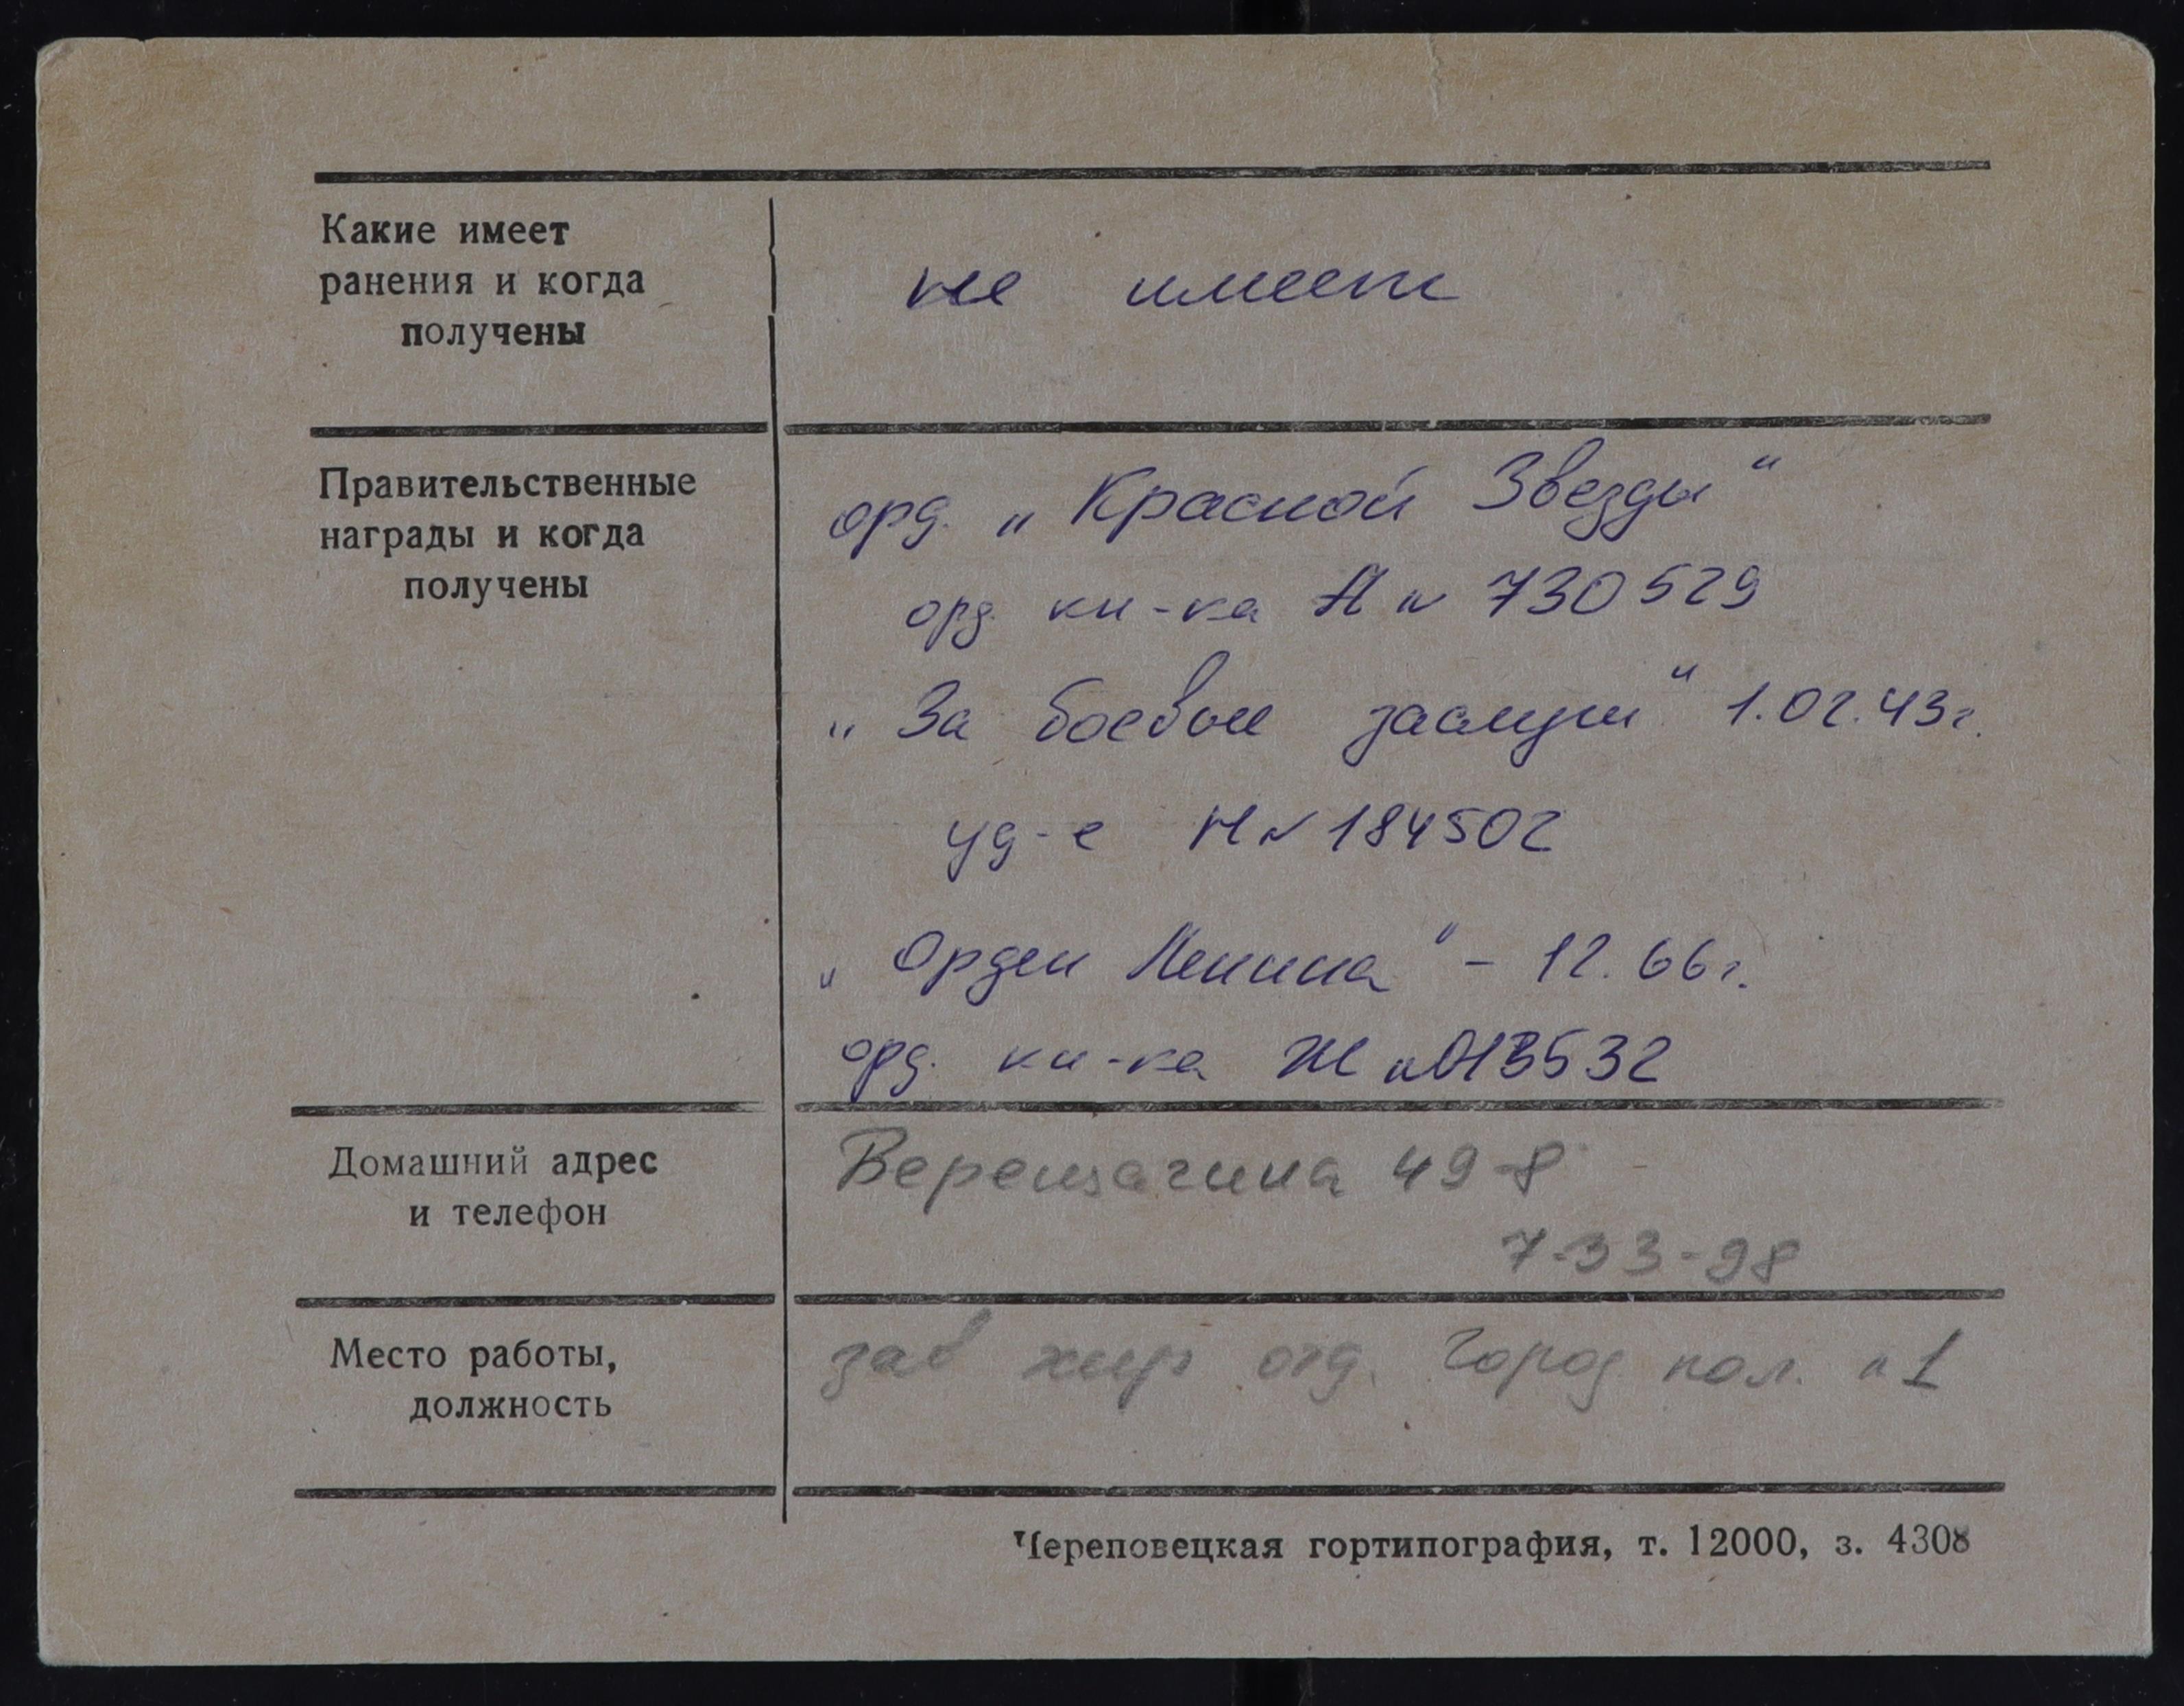 Какие имеет
ранения и когда
получены
не имеет
Правительственные
награды и когда
получены
орд. „Красной Звезды“
орд кн-ка А № 730529
„За боевые заслуги“ 1.02.43г.
уд-е И № 184502
„Орден Ленина“ - 12.66г.
орд. кн-ка Ж № 013532
Домашний адрес
и телефон
Верещагина 49-8
7-33-98
Место работы,
должность
зав хир отд. Город пол. № 1
Череповецкая гортипография, т. 12000, з. 4308